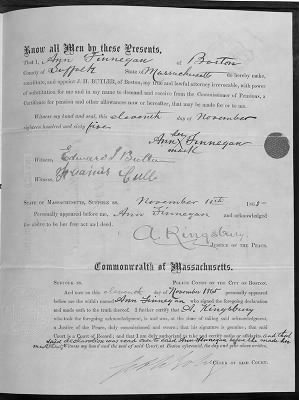 Know all Men by these Presents,
That I, Ann Finnegan of Boston
County of Suffolk State of Massachusetts do hereby make,
constitute, and appoint J. H. BUTLER, of Boston, my true and lawful attorney irrevocable, with power
of substitution for me and in my name to demand and receive from the Commissioner of Pensions, a
Certificate for pension and other allowances now or hereafter, that may be made for or to me.
Witness my hand and seal, this eleventh day of November
eighteen hundred and sixty five
her
Ann X Finnegan
mark
Witness, Edward J Butler
Witness,
STATE OF MASSACHUSETTS, SUFFOLK SS. November 11th 1865
Personally appeared before me, Ann Finnegan and acknowledged
the above to be her free act and deed.
A. Kingsbury
JUSTICE OF THE PEACE.
Commonwealth of Massachusetts.
SUFFOLK SS. POLICE COURT OF THE CITY OF BOSTON.
And now on this eleventh day of November 1865 personally appeared
before me the within named Ann Finnegan who signed the foregoing declaration
and made oath to the truth thereof. I further certify that A. Kingsbury
who took the foregoing acknowledgment, is and was, at the time of taking said acknowledgment,
a Justice of the Peace, duly commissioned and sworn; that his signature is genuine; that said
Court is a Court of Record; and that I am duly authorized to and certify oaths or affidavits. and that
said declaration was read over to said Ann Finnegan before she made her
mark Witness my hand and the seal of said Court, at Boston aforesaid, the day and year above written.
CLERK OF SAID COURT.